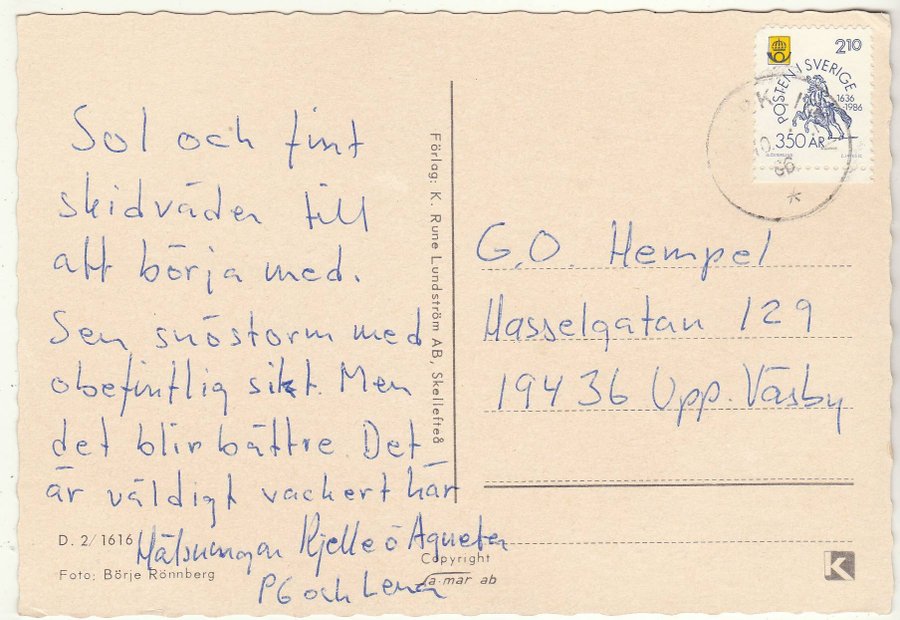 Sol och fint
skidväder till
att börja med.
Sen snöstorm med
obefintlig sikt. Men
det blir bättre. Det
är väldigt vackert här
Hälsningar Kjelle o Agneta
PG och Lena
D. 2/1616
Foto: Börje Rönnberg
Förlag: K. Rune Lundström AB, Skellefteå
Copyright
la-mar ab
210
POSTEN I SVERIGE
1636
-1986
350 ÅR
86
G.O. Hempel
Hasselgatan 129
194 36 Upp. Väsby
K